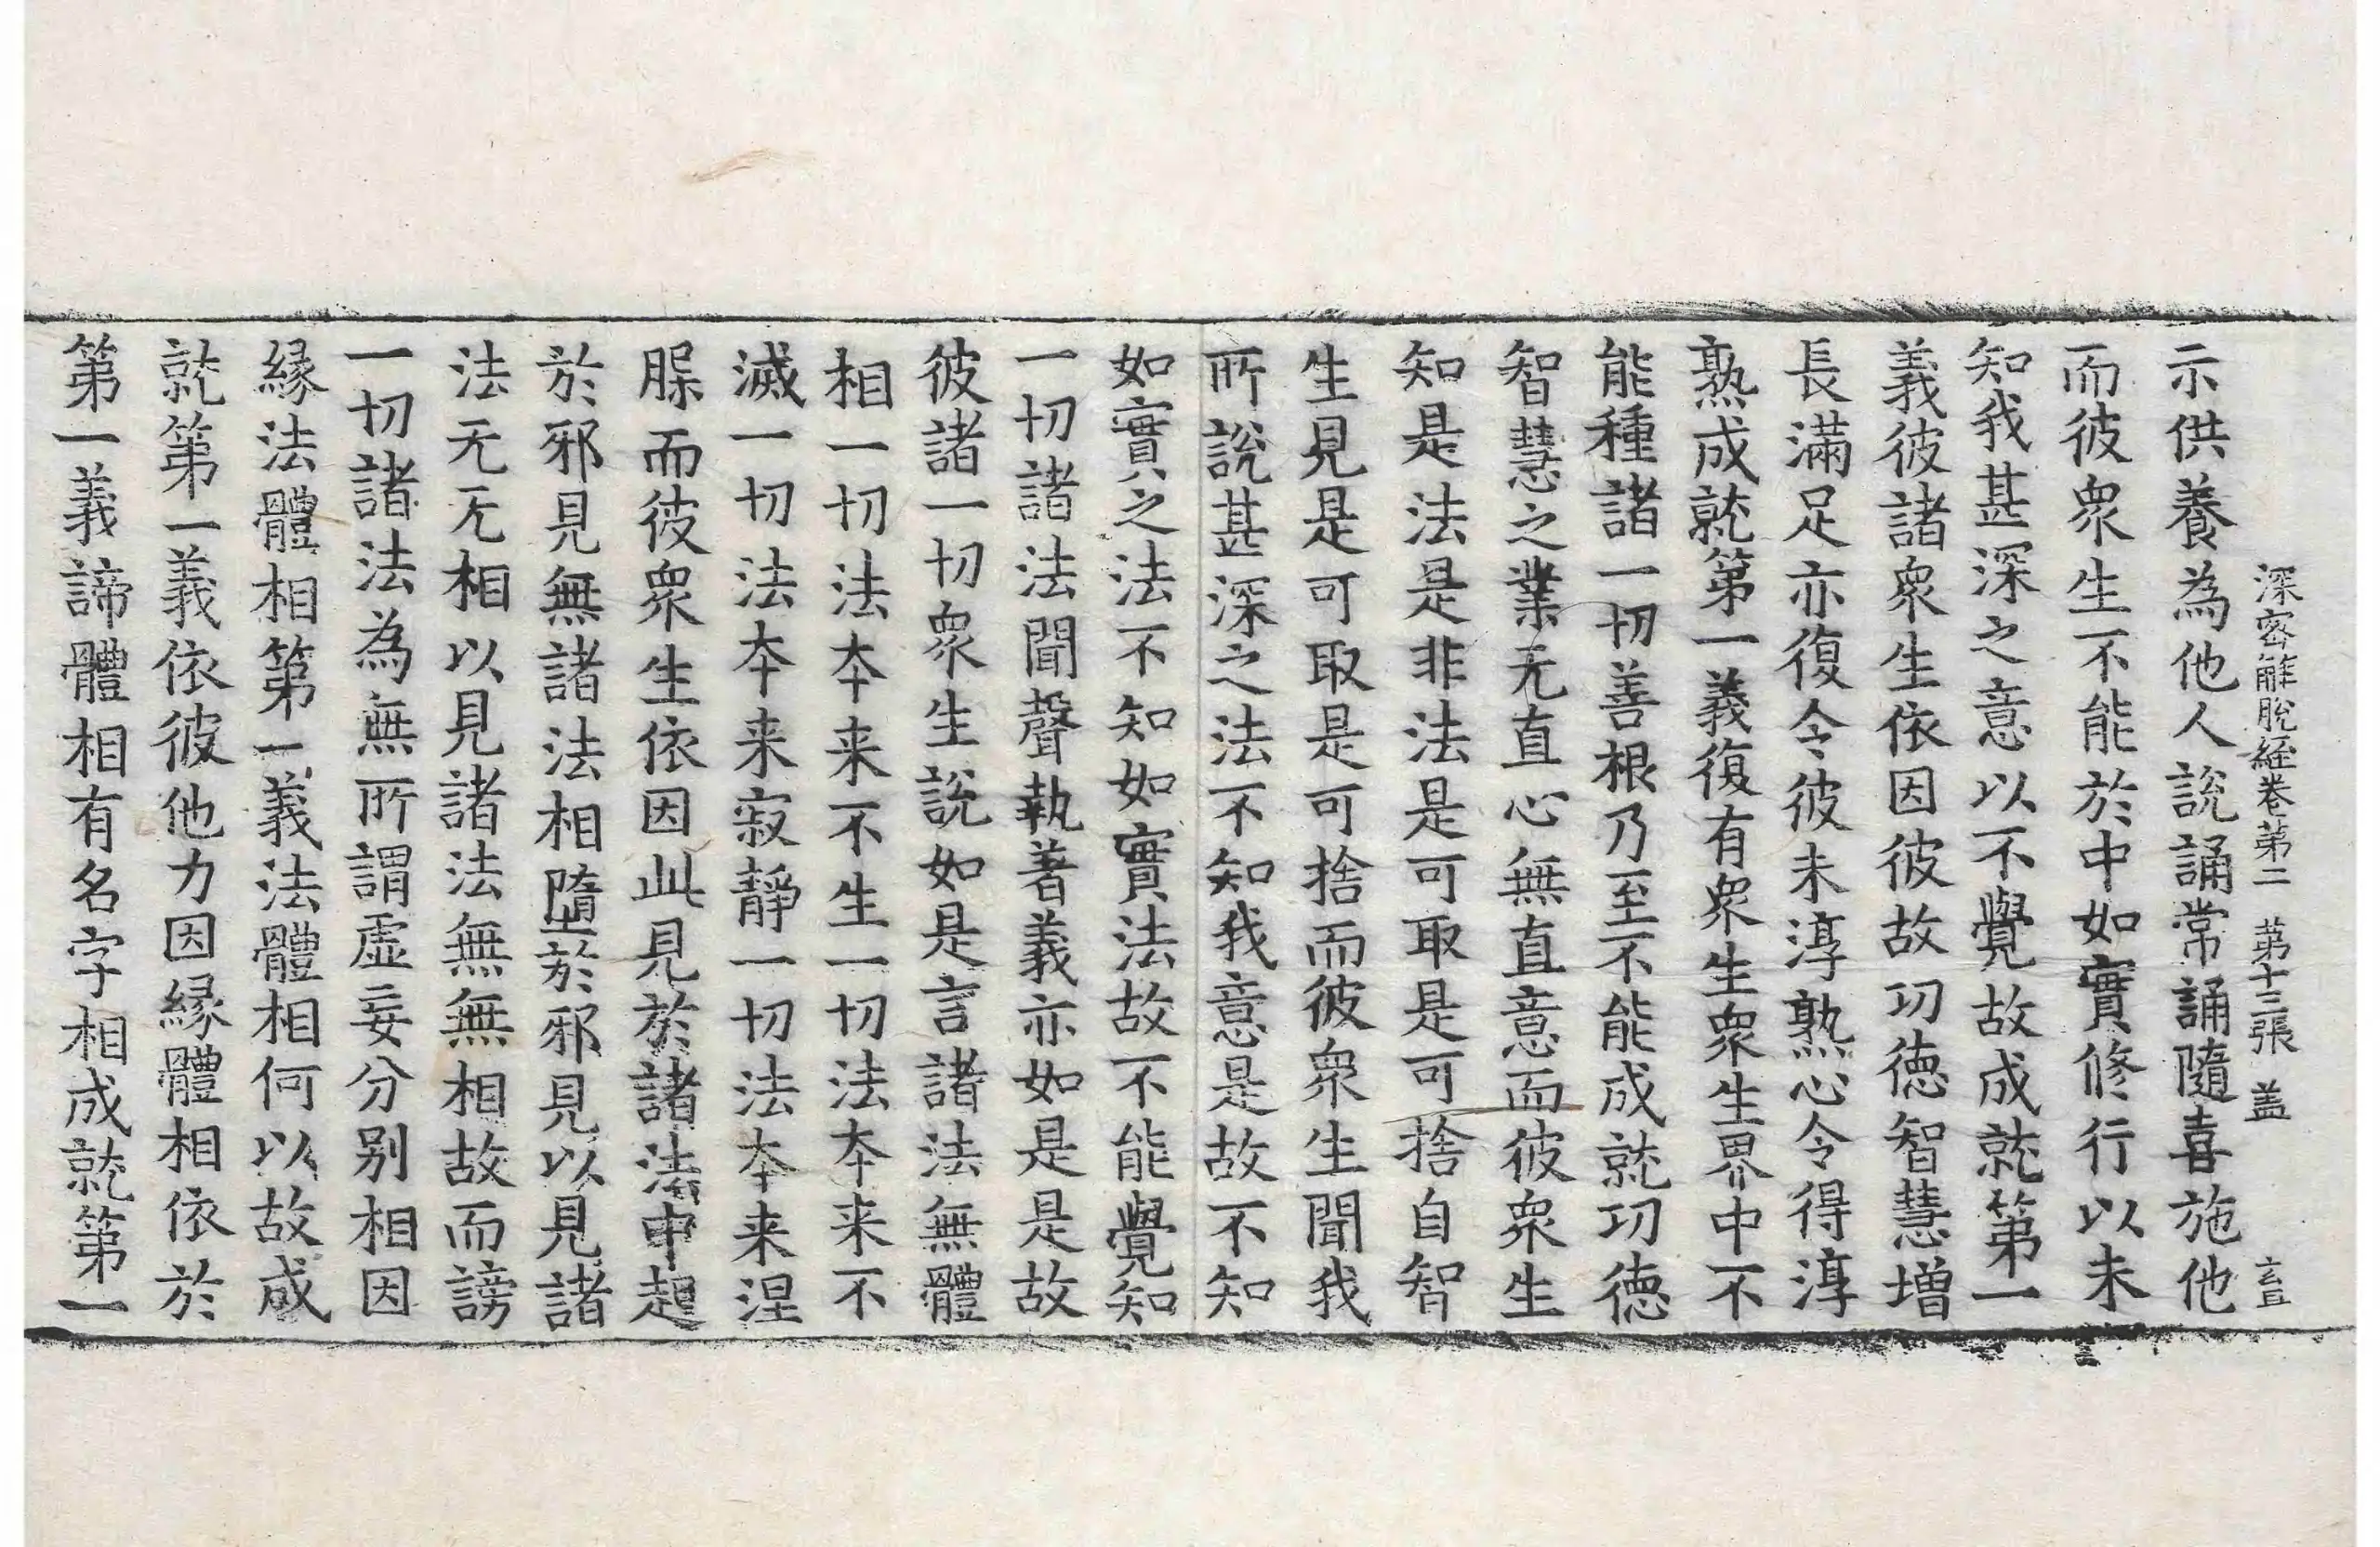 深密解脫經卷第二　第十三張　盖
示供養為他人說誦常誦隨喜施他
而彼衆生不能於中如實修行以未
知我甚深之意以不覺故成就第一
義彼諸衆生依因彼故功德智慧增
長滿足亦復令彼未淳熟心令得淳
熟成就第一義復有衆生衆生界中不
能種諸一切善根乃至不能成就功德
智慧之業无直心無直意而彼衆生
知是法是非法是可取是可捨自智
生見是可取是可捨而彼衆生聞我
所說甚深之法不知我意是故不知
如實之法不知如實法故不能覺知
一切諸法聞聲執著義亦如是是故
彼諸一切衆生說如是言諸法無體
相一切法本来不生一切法本来不
滅一切法本来寂靜一切法本来涅
槃而彼衆生依因此見於諸法中起
於邪見無諸法相墮於邪見以見諸
法无无相以見諸法無無相故而謗
一切諸法為無所謂虛妄分别相因
緣法體相第一義法體相何以故成
就第一義依彼他力因緣體相依於
第一義諦體相有名字相成就第一